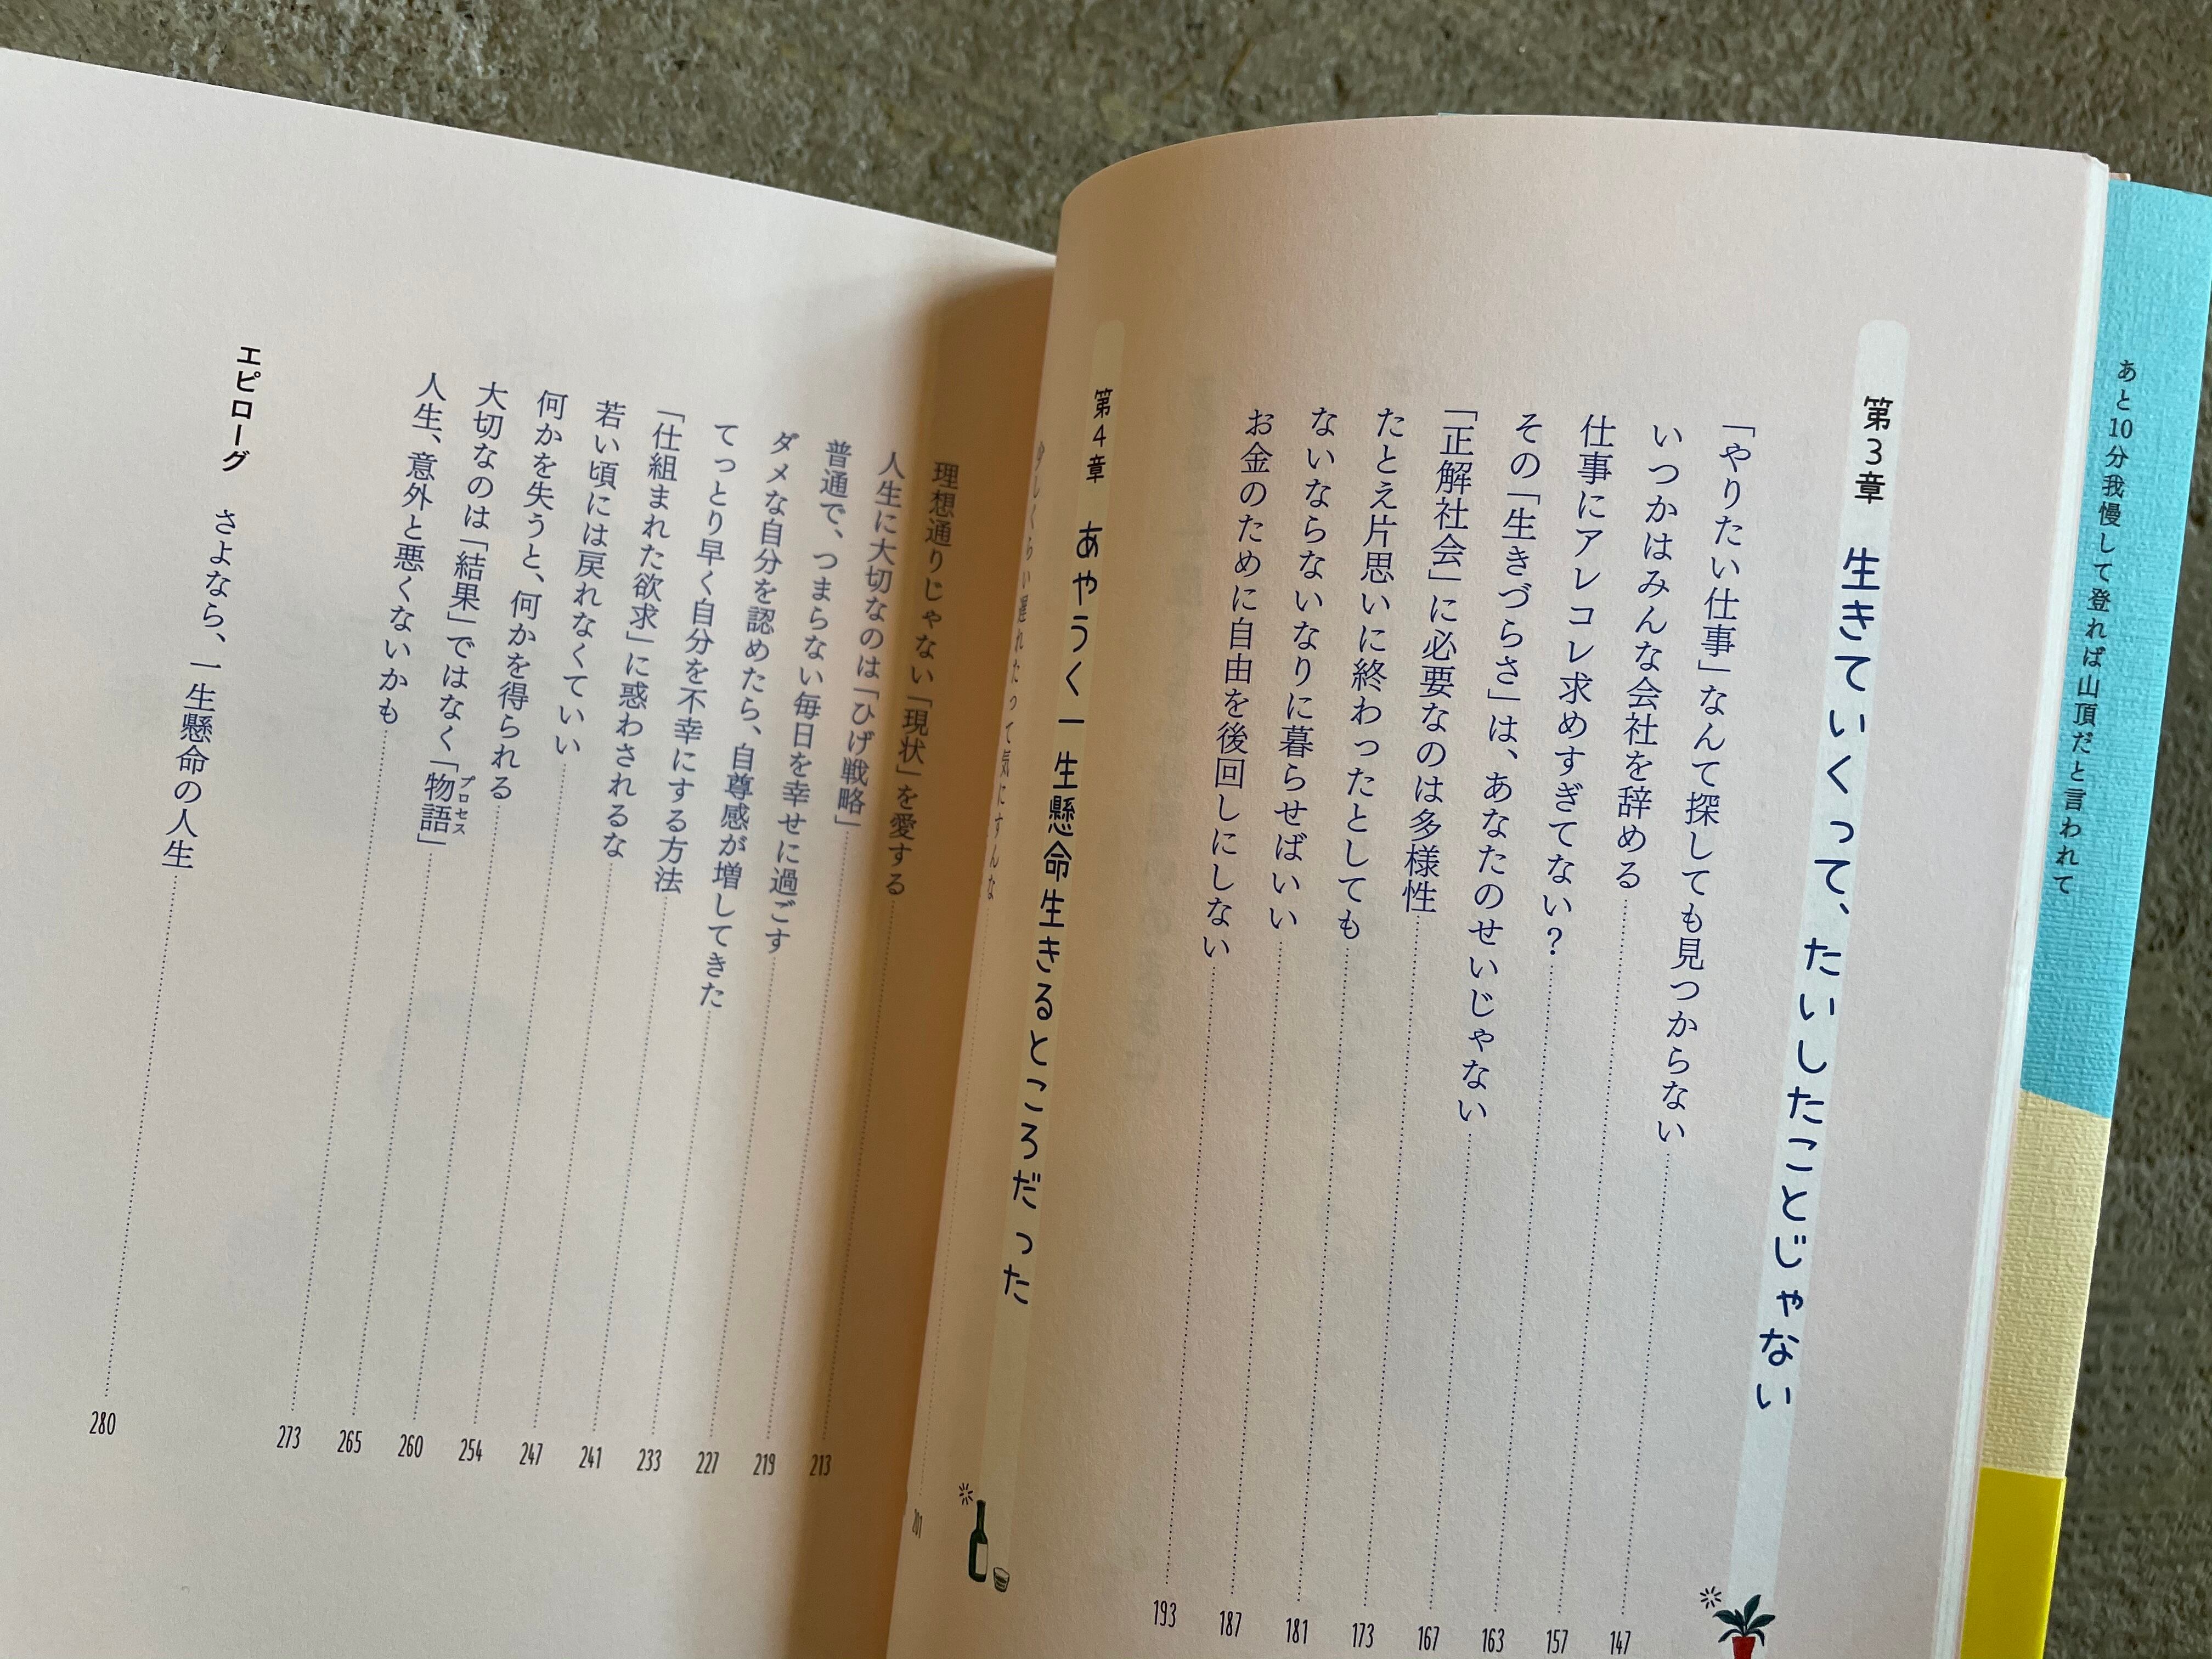 あと10分我慢して登れば山頂だと言われて
第3章 生きていくって、たいしたことじゃない
「やりたい仕事」なんて探しても見つからない 147
いつかはみんな会社を辞める 157
仕事にアレコレ求めすぎてない? 163
その「生きづらさ」は、あなたのせいじゃない 167
「正解社会」に必要なのは多様性 173
たとえ片思いに終わったとしても 181
ないならないなりに暮らせばいい 187
お金のために自由を後回しにしない 193
第4章 あやうく一生懸命生きるところだった
少しくらい遅れたって気にすんな 201
理想通りじゃない「現状」を愛する 213
人生に大切なのは「ひげ戦略」 219
普通で、つまらない毎日を幸せに過ごす 227
ダメな自分を認めたら、自尊感が増してきた 233
てっとり早く自分を不幸にする方法 241
「仕組まれた欲求」に惑わされるな 247
若い頃には戻れなくていい 254
何かを失うと、何かを得られる 260
大切なのは「結果」ではなく「物語」プロセス 265
人生、意外と悪くないかも 273
エピローグ さよなら、一生懸命の人生 280